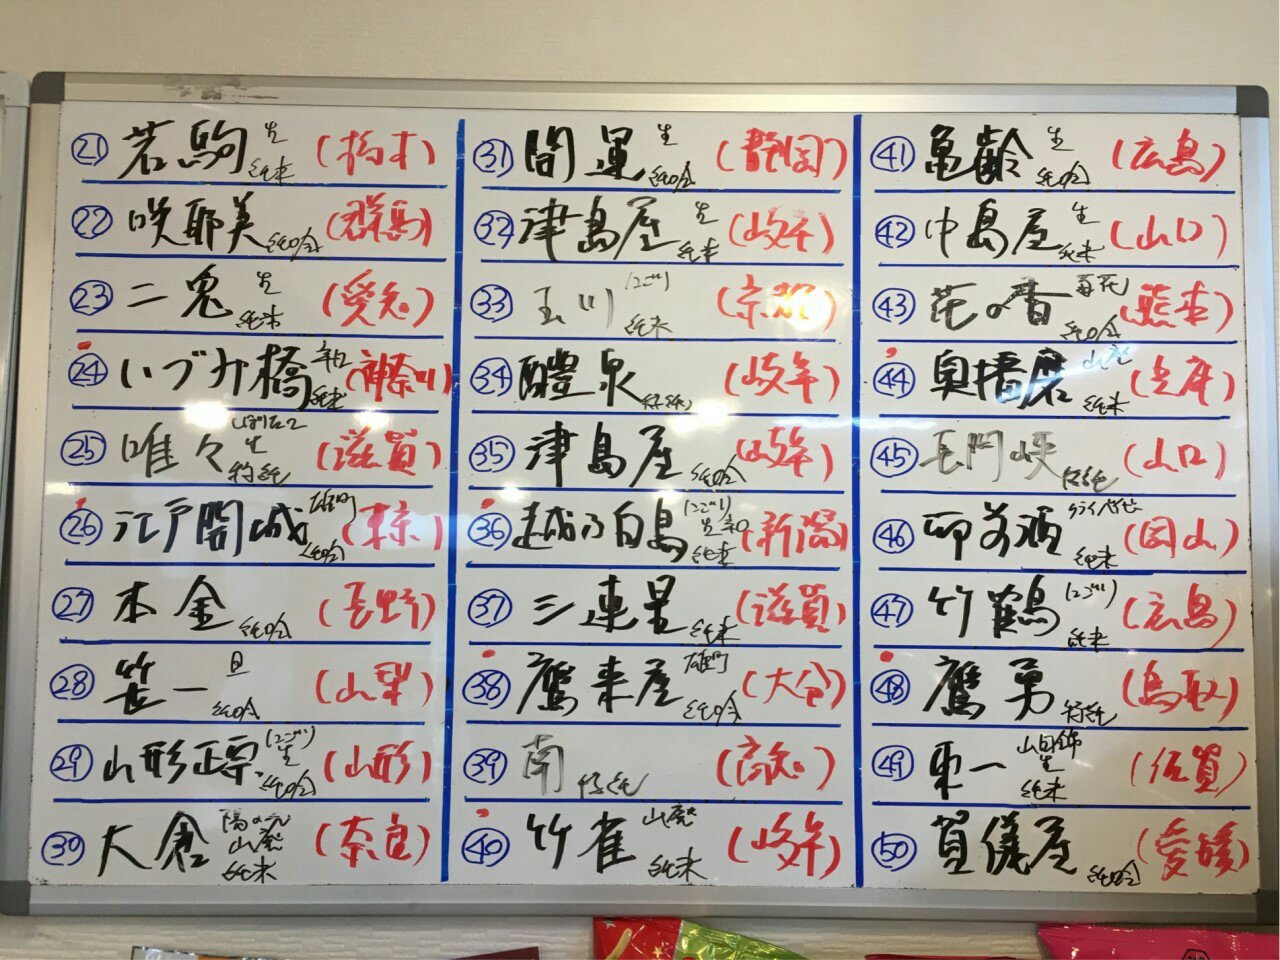 ㉑ 若駒 生 純米 (栃木)
㉒ 咲耶美 純吟 (群馬)
㉓ 二兎 生 純米 (愛知)
㉔ いづみ橋 純米 (神奈川)
㉕ 唯々 しぼりたて 生 特純 (滋賀)
㉖ 江戸開城 雄町 純吟 (東京)
㉗ 本金 純吟 (長野)
㉘ 笹一 旦 純吟 (山梨)
㉙ 山形正宗 にごり 生 純吟 (山形)
㉚ 大倉 陽の光 山廃 純米 (奈良)
㉛ 開運 生 純吟 (静岡)
㉜ 津島屋 生 純米 (岐阜)
㉝ 玉川 にごり 純米 (京都)
㉞ 醴泉 特純 (岐阜)
㉟ 津島屋 純吟 (岐阜)
㊱ 越乃白鳥 にごり 生 純米 (新潟)
㊲ 三連星 純米 (滋賀)
㊳ 鷹来屋 雄町 純吟 (大分)
㊴ 南 特純 (高知)
㊵ 竹雀 山廃 純米 (岐阜)
㊶ 亀齢 生 純吟 (広島)
㊷ 中島屋 生 純米 (山口)
㊸ 花の香 菊花 純吟 (熊本)
㊹ 奥播磨 山廃 純米 (兵庫)
㊺ 長門峡 特純 (山口)
㊻ 御前酒 純米 (岡山)
㊼ 竹鶴 にごり 純米 (広島)
㊽ 鷹勇 特純 (鳥取)
㊾ 東一 山田錦 生 純米 (佐賀)
㊿ 賀儀屋 純吟 (愛媛)